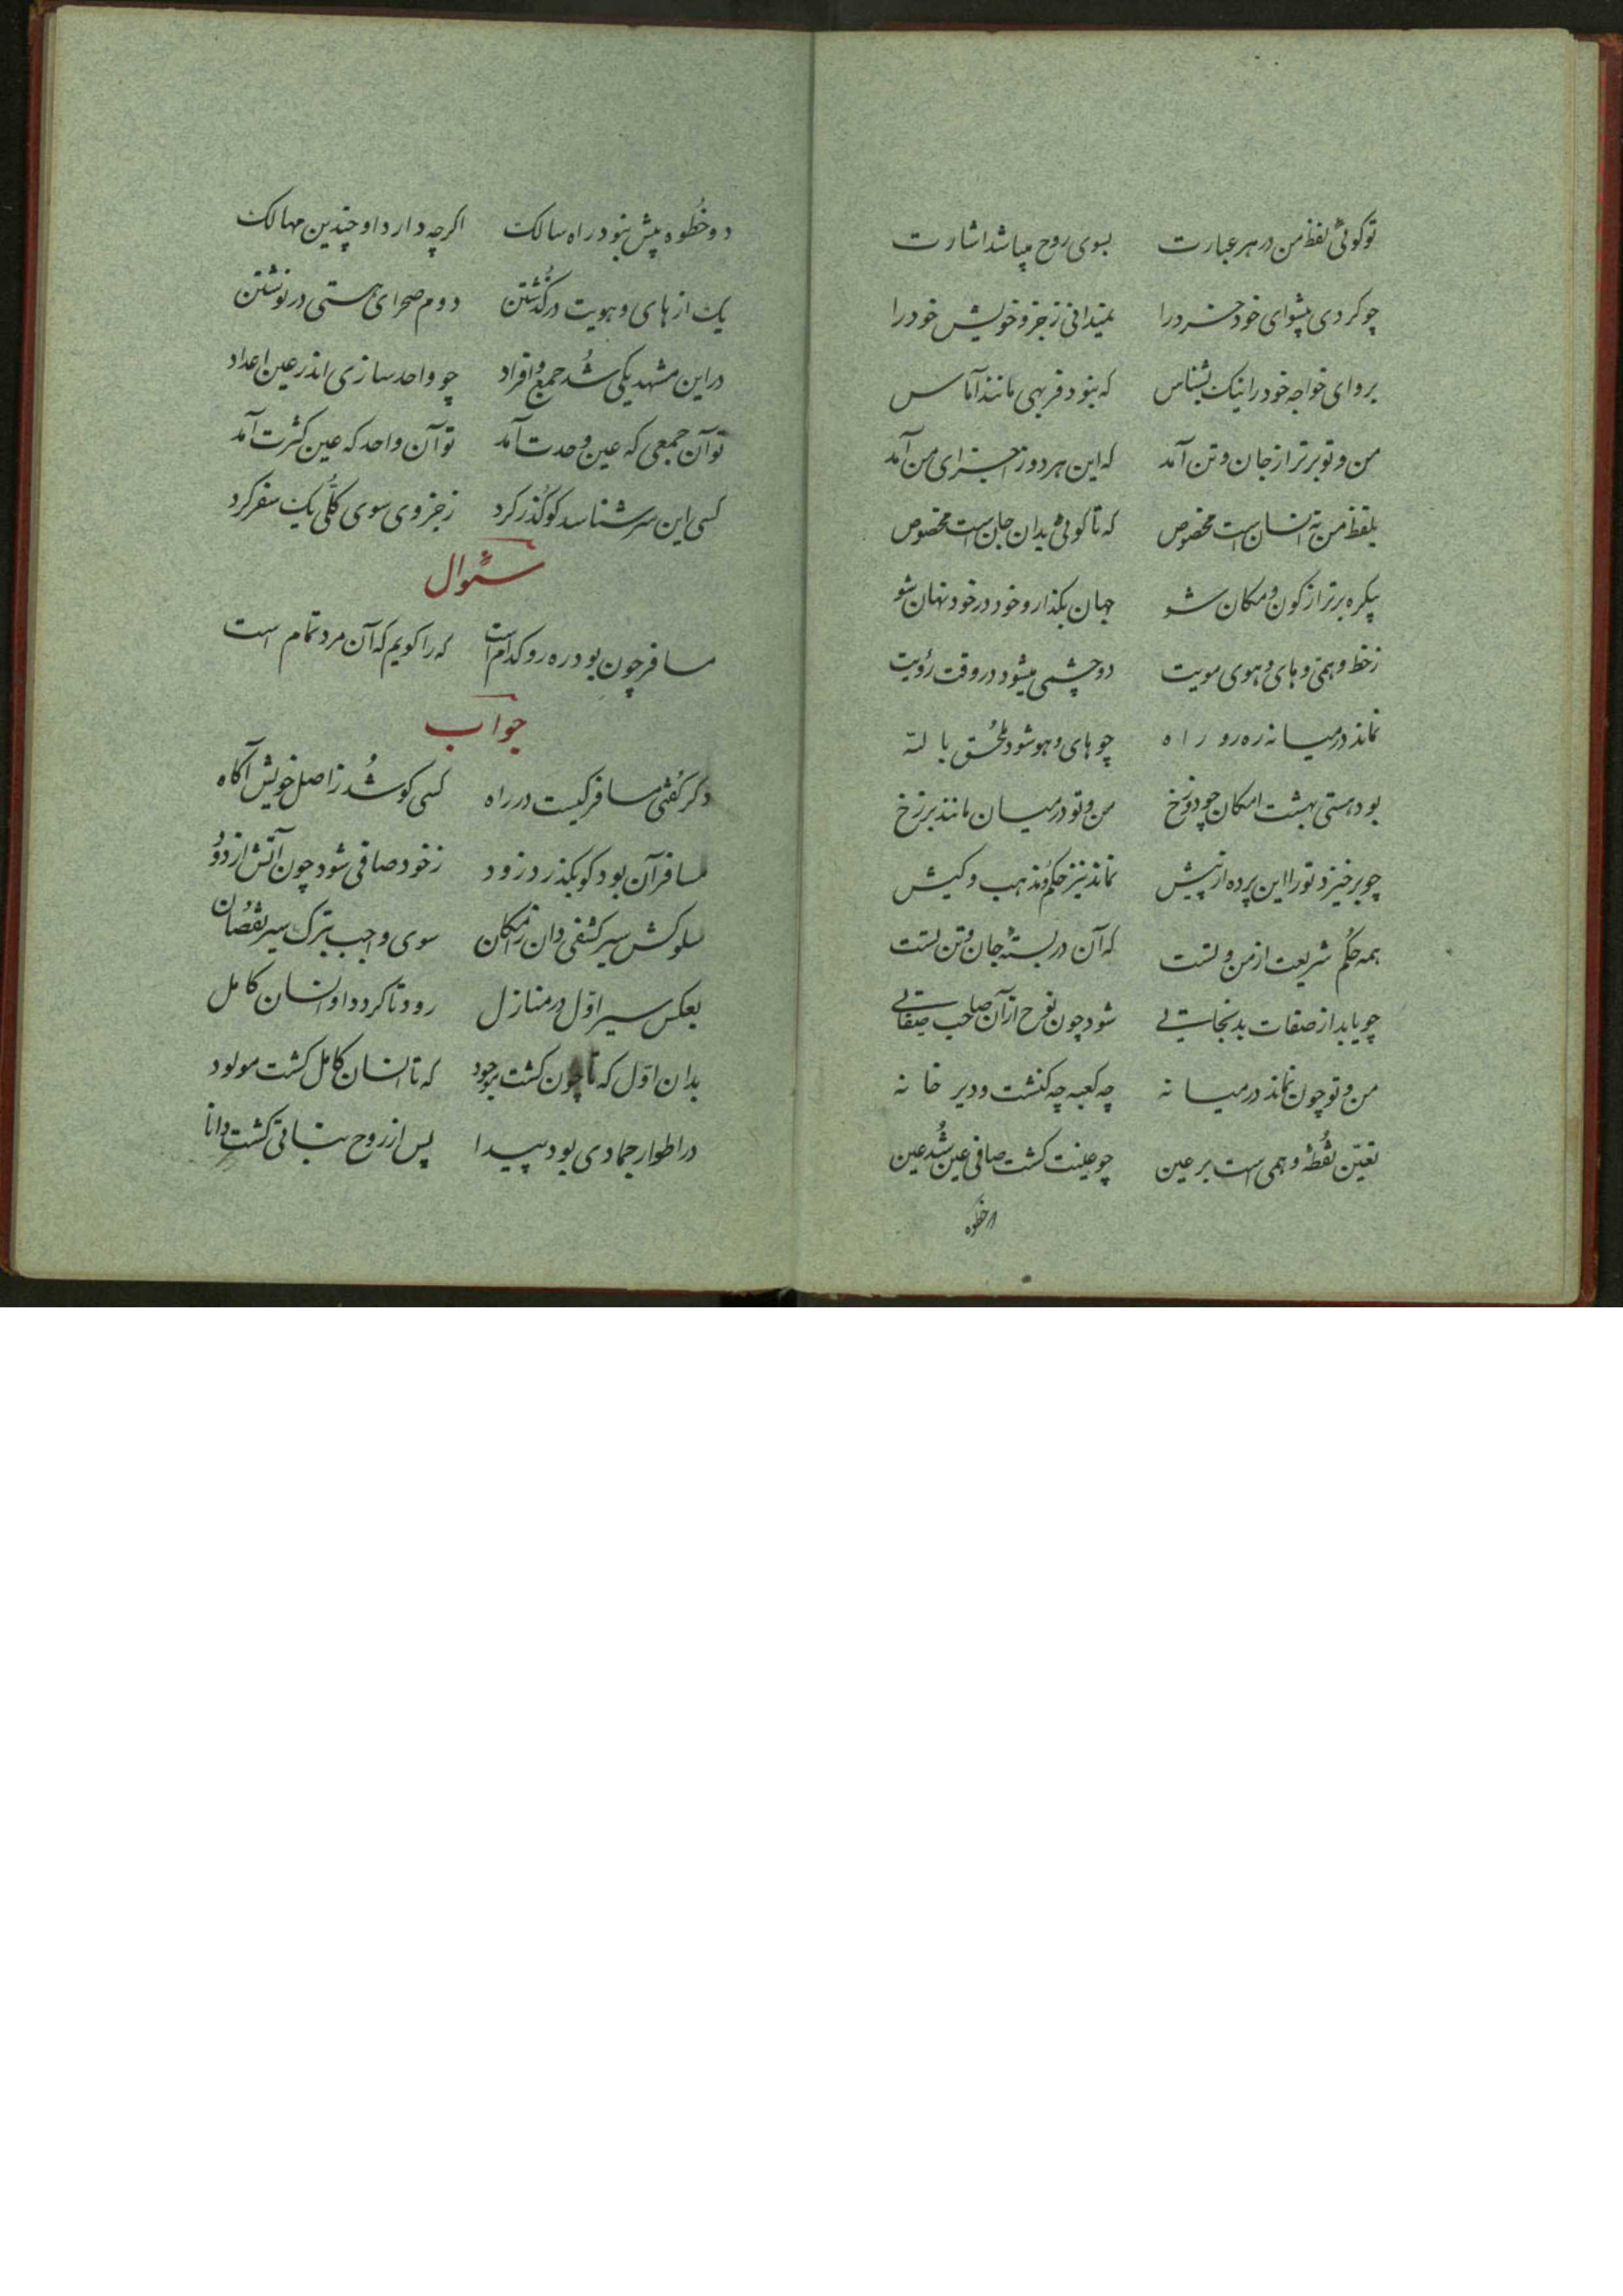 تو کوئی لفظ من در هر عبارت بسوی روح میباشد اشارت
چو کردی پیشوای خود خرد را نمیدانی ز جزو خویش خود را
برو ای خواجه خود را نیک بشناس که نبود فربهی مانند آماس
من و تو برتر از جان و تن آمد که این هر دو ز اجزای من آمد
بلفظ من نه انسان است مخصوص که تا کوئی بدان جان است مخصوص
یکره برتر از کون و مکان شو جهان بکذار و خود در خود نهان شو
ز خط وهمی و های و هوی مویت دو چشمی میشود در وقت رؤیت
نماند در میانه ره رو راه چو های و هو شود ملحق با لله
بود هستی بهشت امکان چو دوزخ من و تو در میان مانند برزخ
چو برخیزد تو را این پرده از پیش نماند نیز حکم و مذهب و کیش
همه حکم شریعت از من و تست که آن در بستهٔ جان و تن تست
چو یابد از صفات بد نجاتی شود چون نوح از آن صاحب صفاتی
من و تو چون نماند در میانه چه کعبه چه کنشت و دیر خانه
تعیّن نقطهٔ وهمی است بر عین چو عینت کشت صافی عین شد عین
دو خطوه
دو خطوه بیش نبود در راه سالک اکرچه دارد او چندین مهالک
یک از های و هویت در کذشتن دوم صحرای هستی در نوشتن
در این مشهد یکی شد جمع و افراد چو واحد سازی اندر عین اعداد
تو آن جمعی که عین وحدت آمد تو آن واحد که عین کثرت آمد
کسی این سر شناسد کو کذر کرد ز جزوی سوی کلی یک سفر کرد
سئوال
مسافر چون بود ره رو کدام است که را کویم که آن مرد تمام است
جواب
دکر کفتی مسافر کیست در راه کسی کو شد ز اصل خویش آکاه
مسافر آن بود کو بکذرد زود ز خود صافی شود چون آتش از دود
سلوکش سیر کشفی دان ز امکان سوی واجب بترک سیر نقصان
بعکس سیر اوّل در منازل رود تا کردد او انسان کامل
بدان اوّل که تا چون کشت موجود که تا انسان کامل کشت مولود
در اطوار جمادی بود پیدا پس از روح نباتی کشت دانا